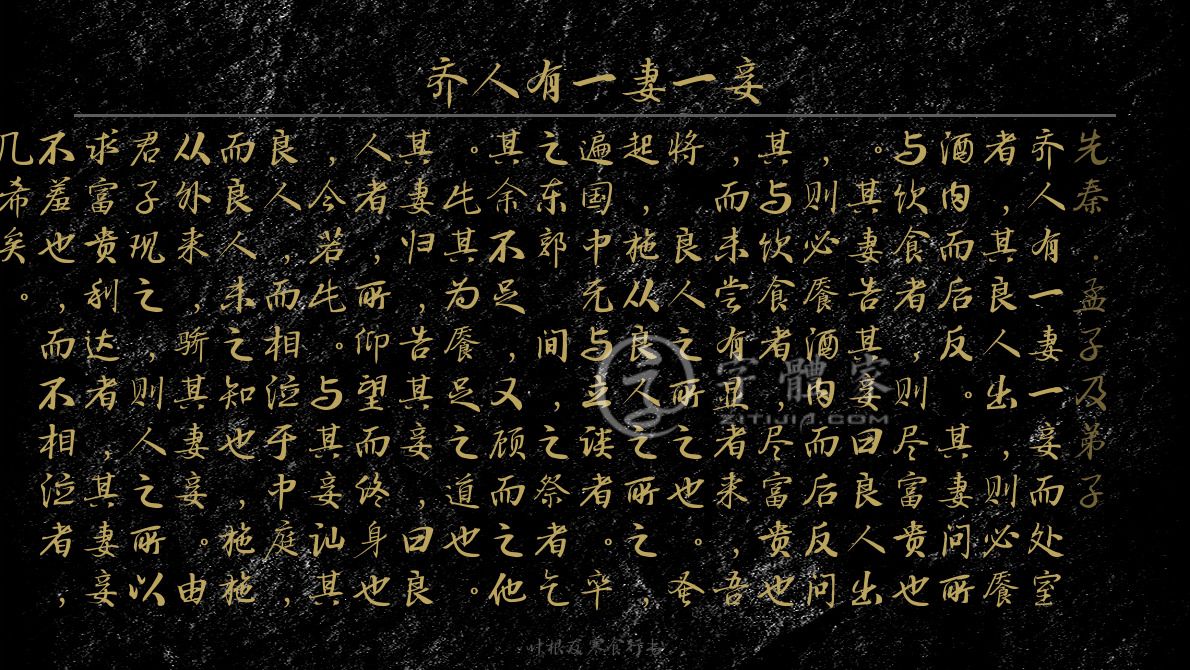 齐人有一妻一妾
先秦·孟子及弟子
齐人有一妻一妾而处室
者，其良人出，则必餍
酒肉而后反。其妻问所
与饮食者，则尽富贵也
。其妻告其妾曰良人出
，则必餍酒肉而后反问
其与饮食者，尽富贵也
，而未尝有显者来，吾
将良人之所之也。蚤
起，施从良人之所之，
遍国中无与立谈者。卒
之东郭间，之祭者乞
其余不足，又顾而之他
。此其为餍足之道也。
其妻归，告其妾曰良
人者，所仰望而终身也
，今若此。与其妾讪其
良人，而相泣于中庭，
而良人未之知也，施施
从外来，骄其妻妾。由
君子现之，则人之所以
求富贵利达者，其妻妾
不羞也，而不相泣者，
几希矣。
字體家
ZITIJIA.COM
叶根友寒食行书